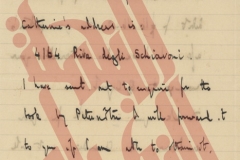 Catherine's address is
4184 Riva degli Schiavoni
I have sent out to enquire for the
book by Petrarch & will forward it
to you if I am able to obtain it.